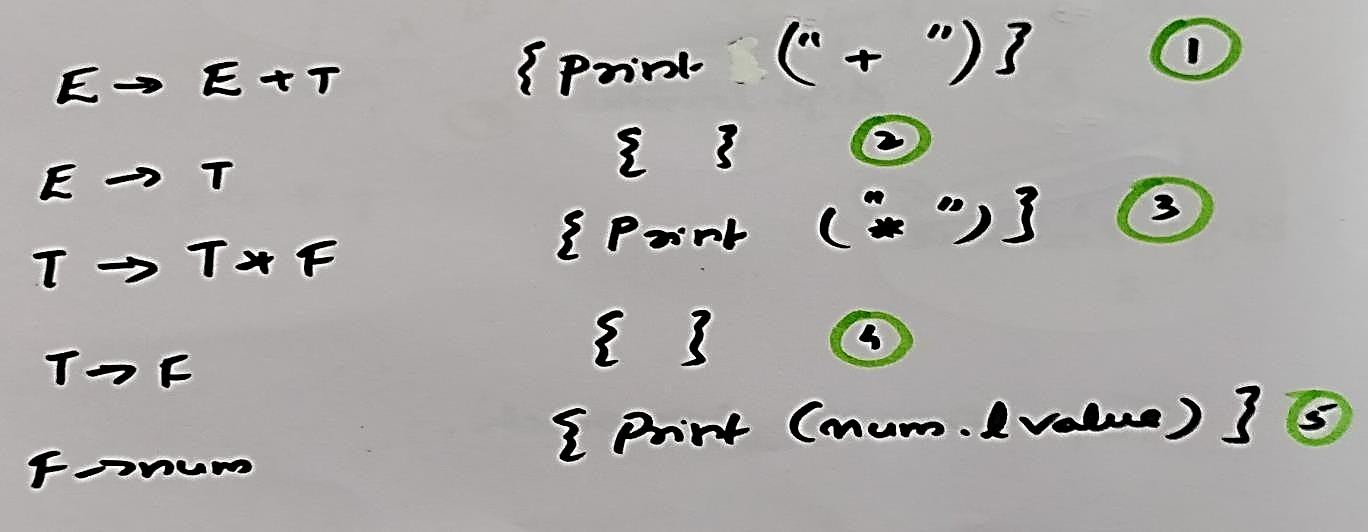 E → E + T {Print ("+ ")} 1
E → T { } 2
T → T * F {Print ("* ")} 3
T → F { } 4
F → num {Print (num.lvalue)} 5